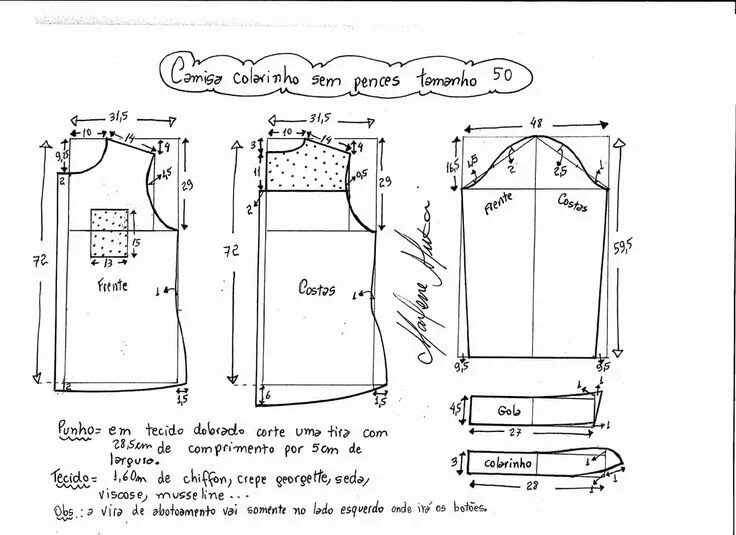 Camisa colarinho sem pences tamanho 50
31,5
10
14
4
9,5
2
4,5
29
72
15
13
Frente
1
2
1,5
31,5
10
14
4
3
11
0,5
2
29
72
Costas
1
6
1,5
48
16,5
1,5
2
2,5
1
Frente
Costas
59,5
9,5
9,5
4,5
Gola
27
1
1
1
3
colarinho
28
1
1
1
Punho= em tecido dobrado corte uma tira com
28,5cm de comprimento por 5cm de
largura.
Tecido= 1,60m de chiffon, crepe georgette, seda,
viscose, musseline ...
Obs.: a vira de abotoamento vai somente no lado esquerdo onde irá os botões.